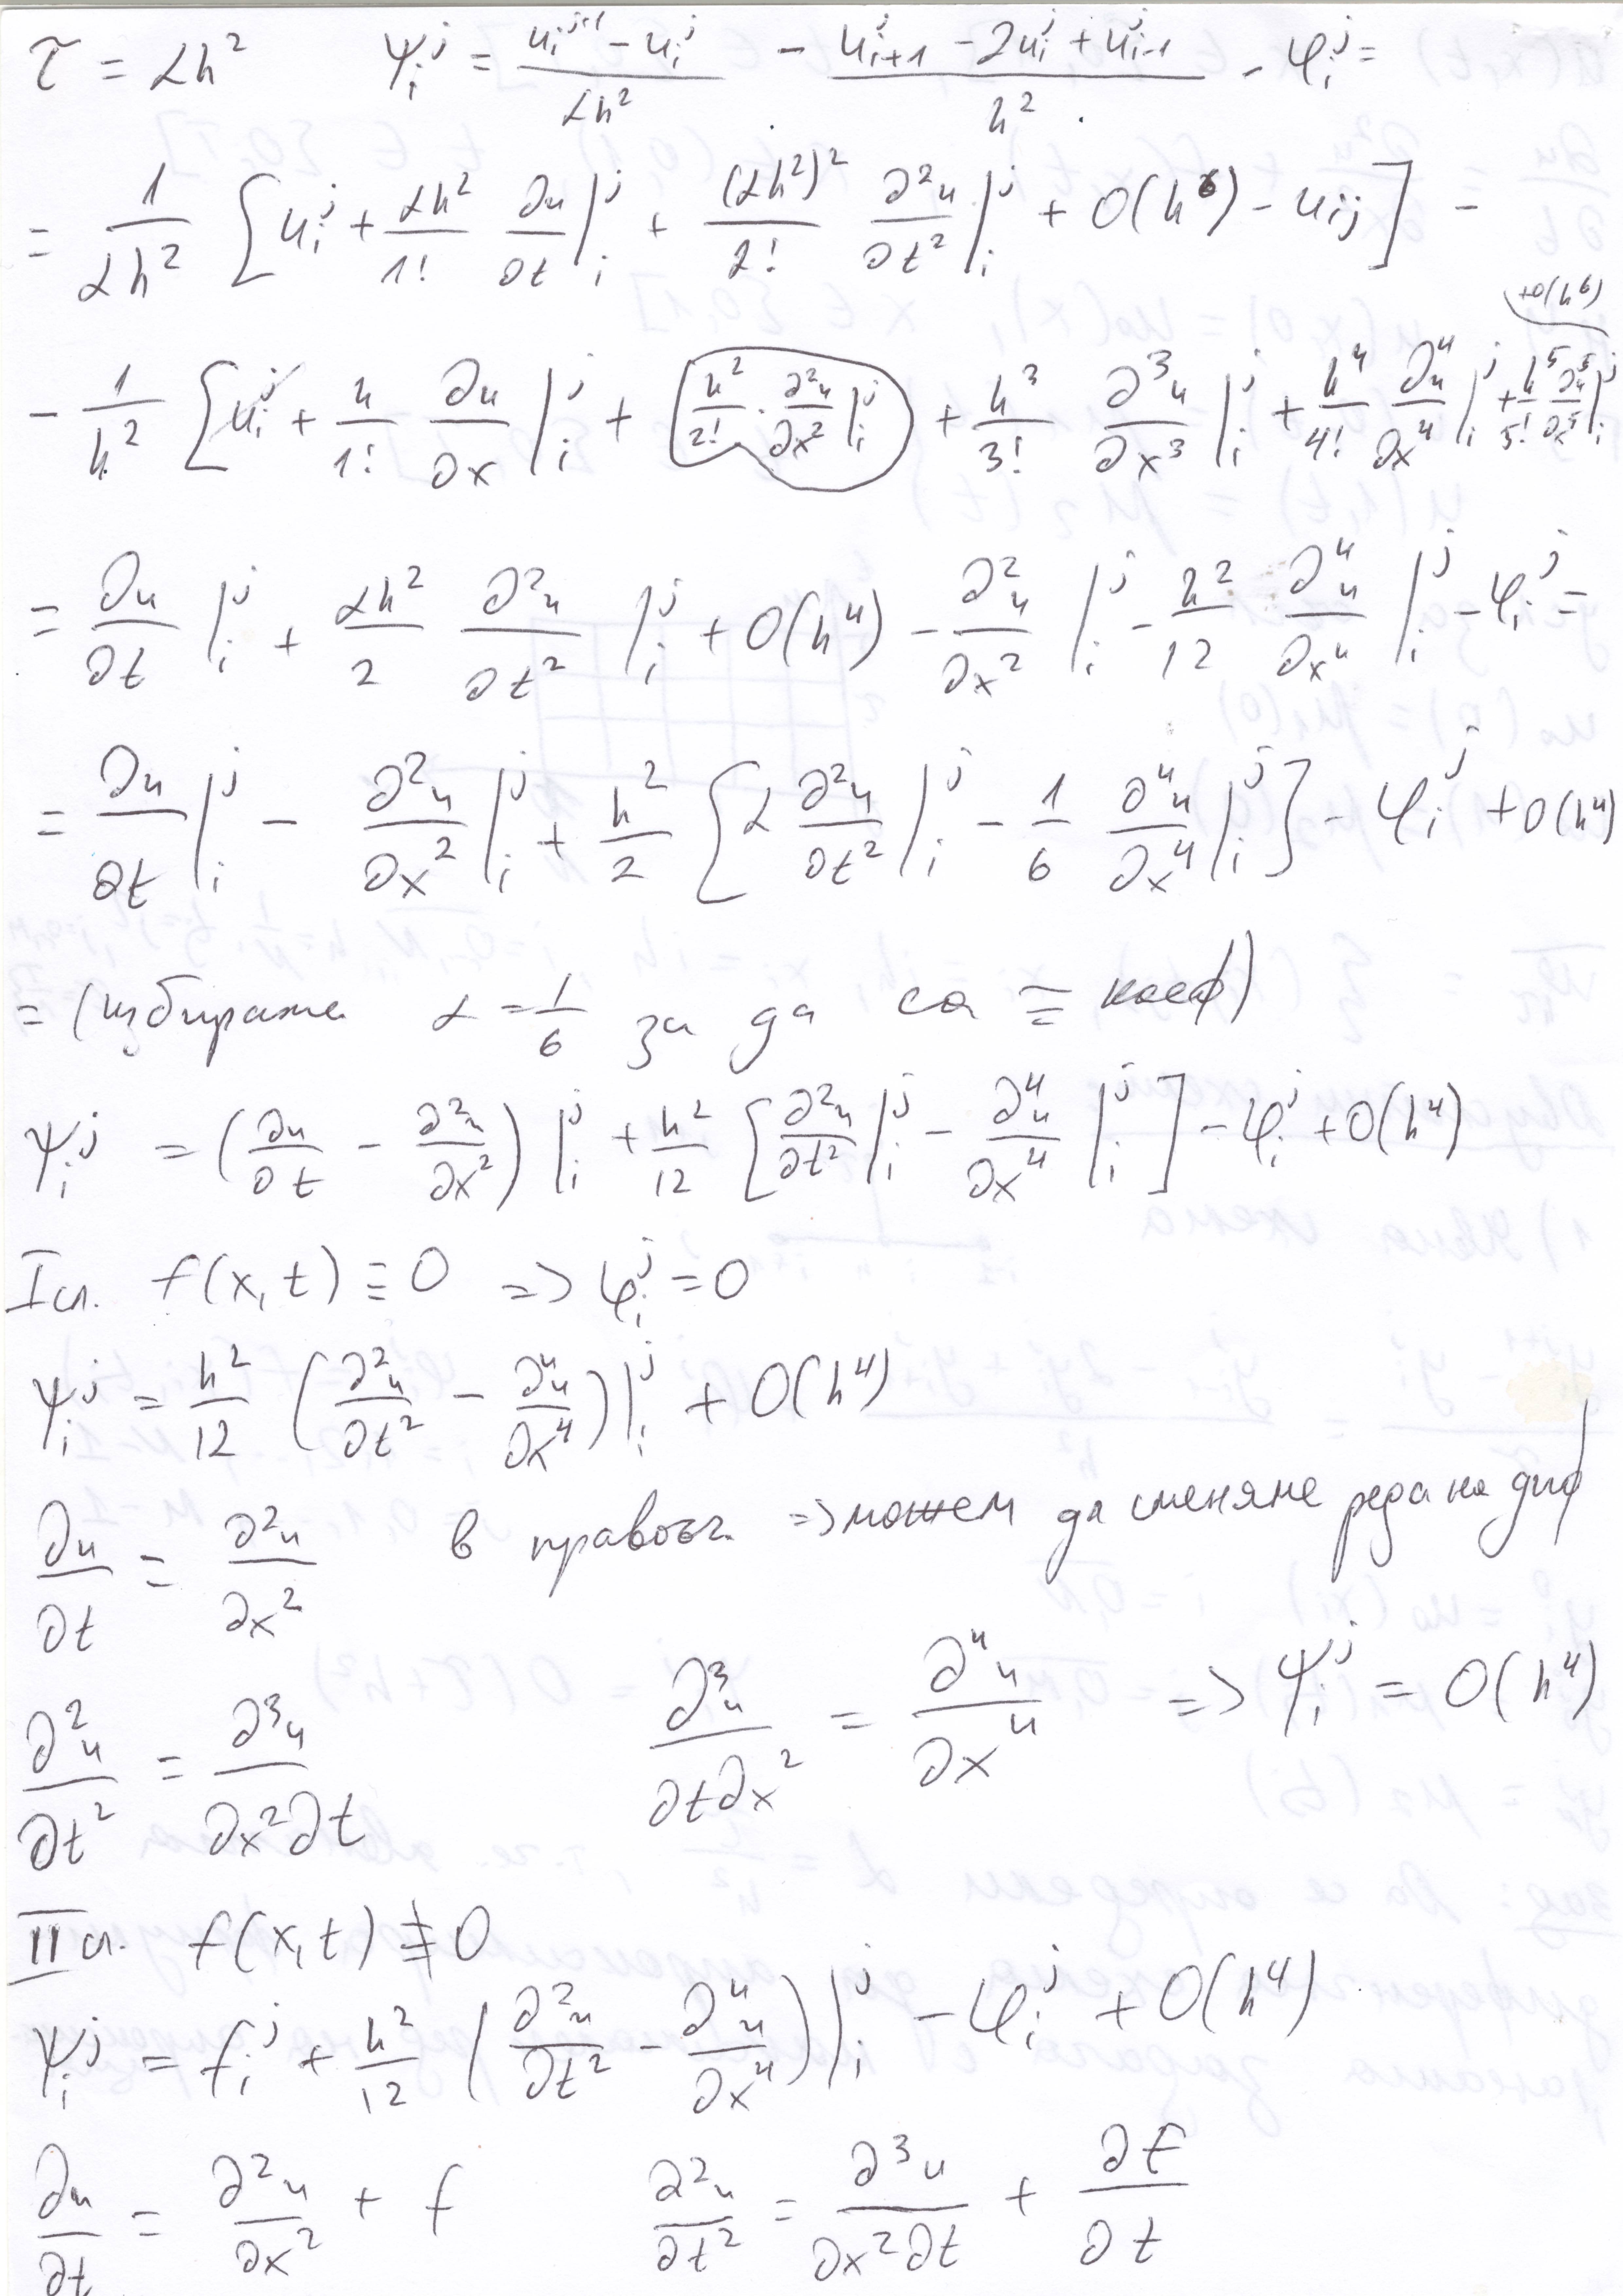 τ = αh² ψᵢʲ = (uᵢʲ⁺¹ - uᵢʲ)/(αh²) - (uᵢ₊₁ʲ - 2uᵢʲ + uᵢ₋₁ʲ)/h² - φᵢʲ =
= 1/(αh²) [uᵢʲ + αh²/1! ∂u/∂t|ᵢʲ + (αh²)²/2! ∂²u/∂t²|ᵢʲ + O(h⁶) - uij] -
- 1/h² [uᵢʲ + h/1! ∂u/∂x|ᵢʲ + h²/2! · ∂²u/∂x²|ᵢʲ + h³/3! ∂³u/∂x³|ᵢʲ + h⁴/4! ∂⁴u/∂x⁴|ᵢʲ + h⁵/5! ∂⁵u/∂x⁵|ᵢʲ +O(h⁶)
= ∂u/∂t|ᵢʲ + αh²/2 ∂²u/∂t²|ᵢʲ + O(h⁴) - ∂²u/∂x²|ᵢʲ - h²/12 ∂⁴u/∂x⁴|ᵢʲ - φᵢʲ =
= ∂u/∂t|ᵢʲ - ∂²u/∂x²|ᵢʲ + h²/2 [α ∂²u/∂t²|ᵢʲ - 1/6 ∂⁴u/∂x⁴|ᵢʲ] - φᵢʲ + O(h⁴)
= (избираме α = 1/6 за да са ≅ коеф)
ψᵢʲ = (∂u/∂t - ∂²u/∂x²)|ᵢʲ + h²/12 [∂²u/∂t²|ᵢʲ - ∂⁴u/∂x⁴|ᵢʲ] - φᵢʲ + O(h⁴)
I сл. f(x,t) ≡ 0 => φᵢʲ = 0
ψᵢʲ = h²/12 (∂²u/∂t² - ∂⁴u/∂x⁴)|ᵢʲ + O(h⁴)
∂u/∂t = ∂²u/∂x² в правоъг. => можем да сменяме реда на диф
∂²u/∂t² = ∂³u/∂x²∂t ∂³u/∂t∂x² = ∂⁴u/∂x⁴ => ψᵢʲ = O(h⁴)
II сл. f(x,t) ≢ 0
ψᵢʲ = fᵢʲ + h²/12 (∂²u/∂t² - ∂⁴u/∂x⁴)|ᵢʲ - φᵢʲ + O(h⁴)
∂u/∂t = ∂²u/∂x² + f ∂²u/∂t² = ∂³u/∂x²∂t + ∂f/∂t